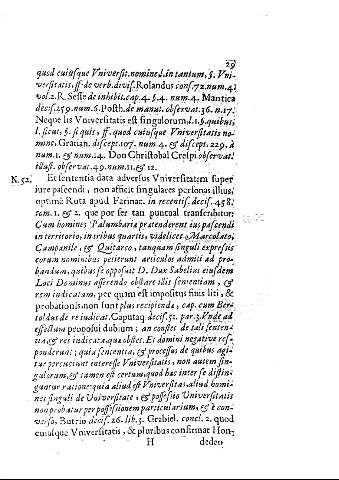 29
quod cuiusque Vniversit. nomine, l. in tantum, §. Vni-
versitatis, ff. de verb. divis. Rolandus cons. 72. num. 4.
vol. 2. R. Sesse de inhibit. cap. 4. §. 4. num. 4. Mantica
decis. 259. num. 6. Posth. de manut. observat. 36. n. 17.
Neque lis Vniversitatis est singulorum, d. l. 5. quibus,
l. sicut, §. si quis, ff. quod cuiusque Vniversitatis no-
mine, Gratian. discept. 107. num. 4. & discept. 229. à
num. 1. & num. 14. Don Christobal Crespi observat.
illust. observat. 49. num. 11. & 12.
N. 52. Et sententia data adversus Vniversitatem super
iure pascendi, non afficit singulares personas illius,
optimè Rota apud Farinac. in recentis. decis. 458.
tom. 1. & 2. que por ser tan puntual transcribitur:
Cum homines Palumbariæ prætenderent ius pascendi
in territorio, in tribus quartis, videlicet Marcolato,
Campanile, & Quitarco, tanquam singuli expressis
eorum nominibus petierunt articulos admitti ad pro-
bandum, quibus se opposuit D. Dux Sabellus eiusdem
Loci Dominus asserendo obstare illis sententiam, &
rem iudicatam, per quam est impositus finis liti, &
probationis non sunt plus recipienda, cap. cum Ber-
toldus de re iudicat. Caputaq. decis. 52. par. 3. Vnde ad
effectum proposui dubium; an constet de tali senten-
tia, & res iudicata quæ obstet. Et domini negative res-
ponderunt; quia sententia, & processus de quibus agi-
tur percutiunt interesse Vniversitatis, non autem sin-
gulorum, & tamen est certum, quod hæc inter se distin-
guntur ratione: quia aliud est Vniversitas, aliud homi-
nes singuli de Vniversitate, & possessio Vniversitatis
non probatur per possessionem particularium, & è con-
verso, Butrio decis. 26. lib. 3. Grabiel. concl. 2. quod
cuiusque Vniversitatis, & pluribus confirmat Hon-
H dedeo